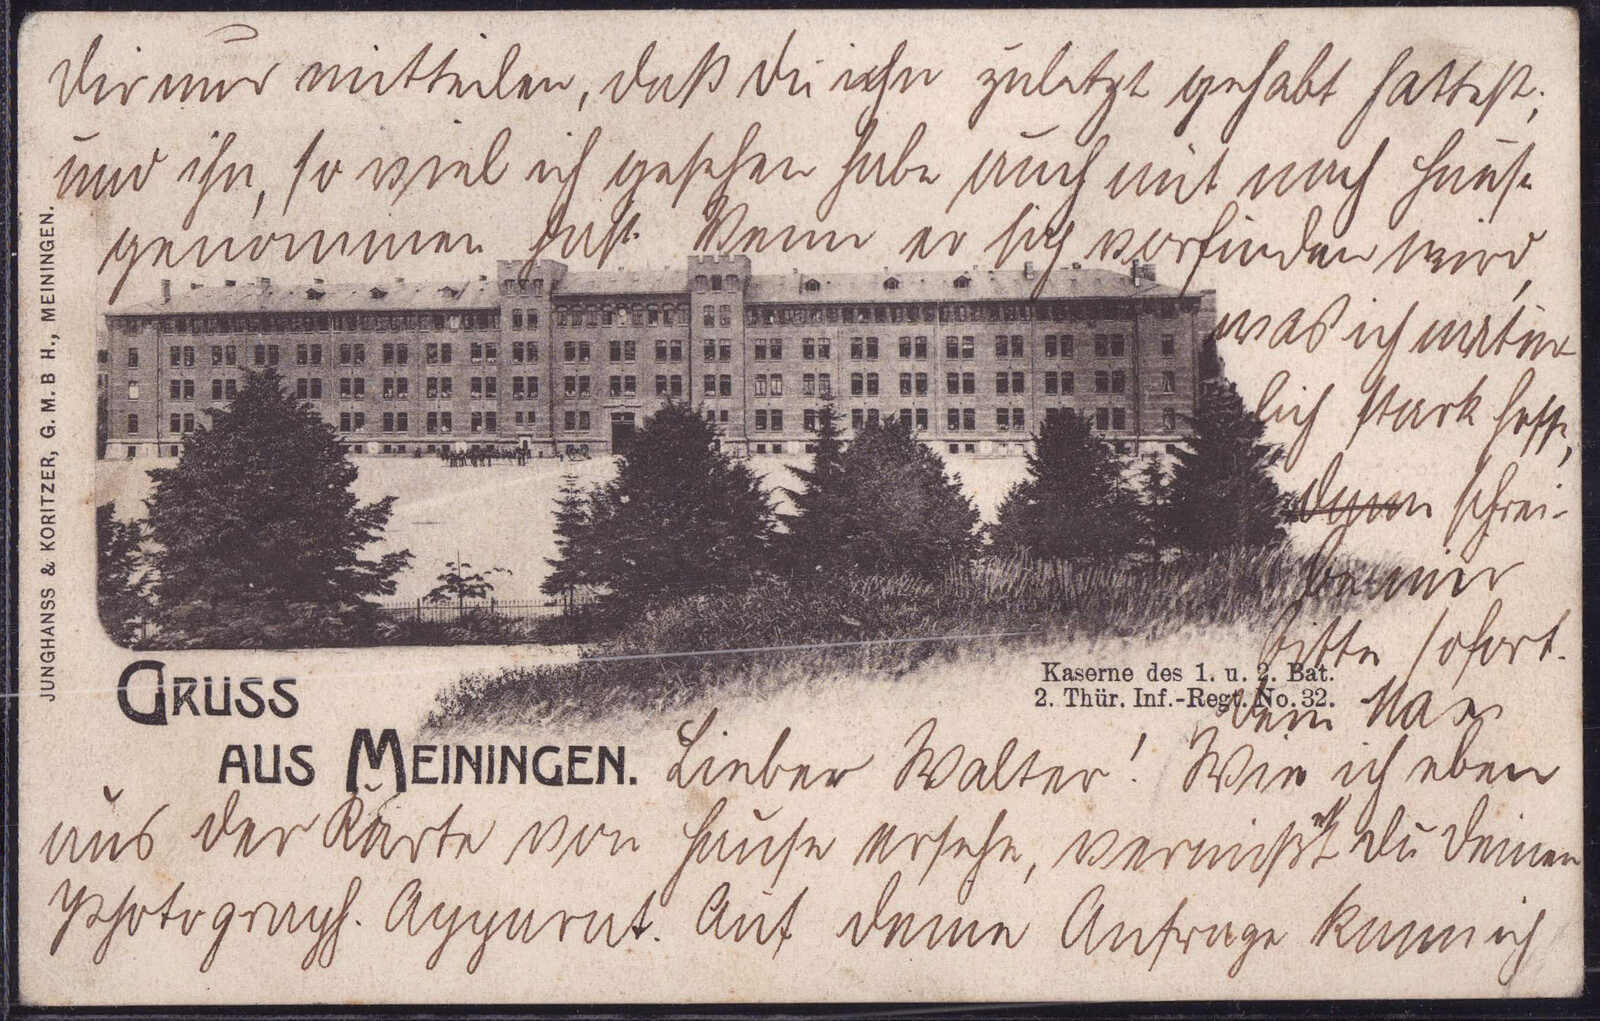 Dir nur mitteilen, daß Du ihn zuletzt gehabt hattest,
und ihn, so viel ich gesehen habe auch mit nach Hause
genommen hast. Wenn er sich vorfinden wird,
was ich natür
lich stark hoffe,
schrei-
be mir
bitte sofort.
Dein Max
JUNGHANSS & KORITZER, G. M. B H., MEININGEN.
GRUSS
AUS MEININGEN.
Kaserne des 1. u. 2. Bat.
2. Thür. Inf.-Regt. No. 32.
Lieber Walter! Wie ich eben
aus der Karte von Hause ersehe, vermißt Du Deinen
Photograph. Apparat. Auf deine Anfrage kann ich